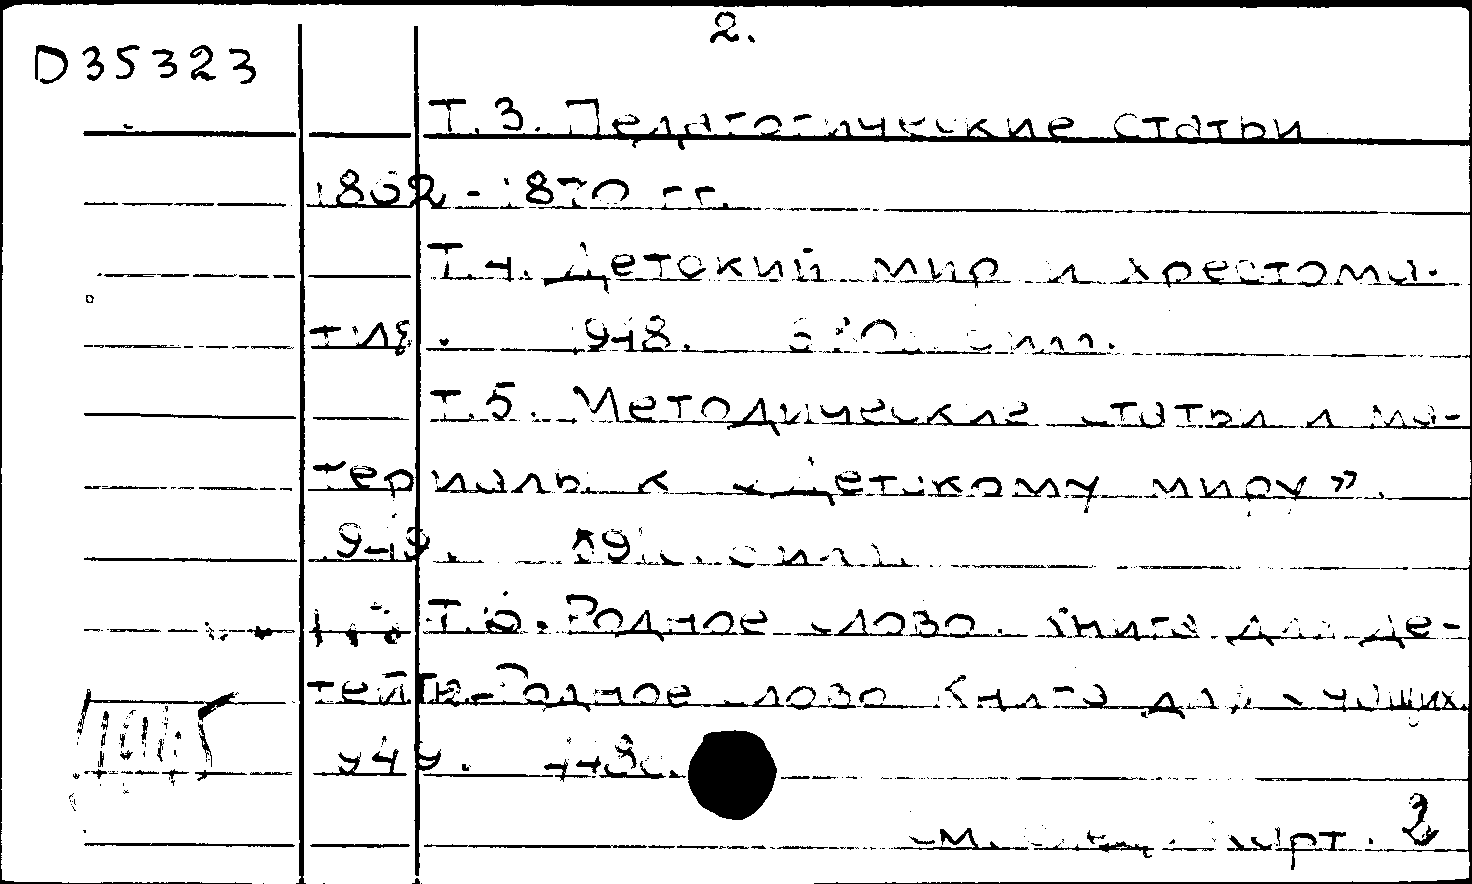 2.
D35323
Т.3. Педагогические статьи
1862-1870 гг.
Т.4. Детский мир и хрестома-
тия. 1948. с илл.
Т.5. Методические статьи и ма-
териалы к «Детскому миру».
1949. с илл.
Т.6. Родное слово. Книга для де-
тей Родное слово Книга для учащих.
1949. 448с.
см. след. карт. 2